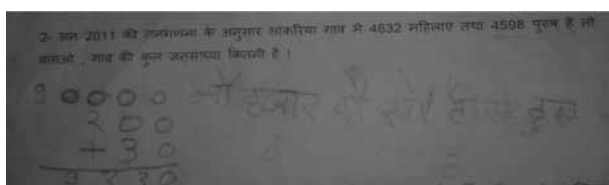 2- सन 2011 की जनगणना के अनुसार आकरिया गाव मे 4632 महिलाए तथा 4598 पुरुष है तो
बताओ , गाव की कुल जनसंख्या कितनी है ।
9 0000 नौ हजार दौ सौ तीस कुल
200
+ 30
9230